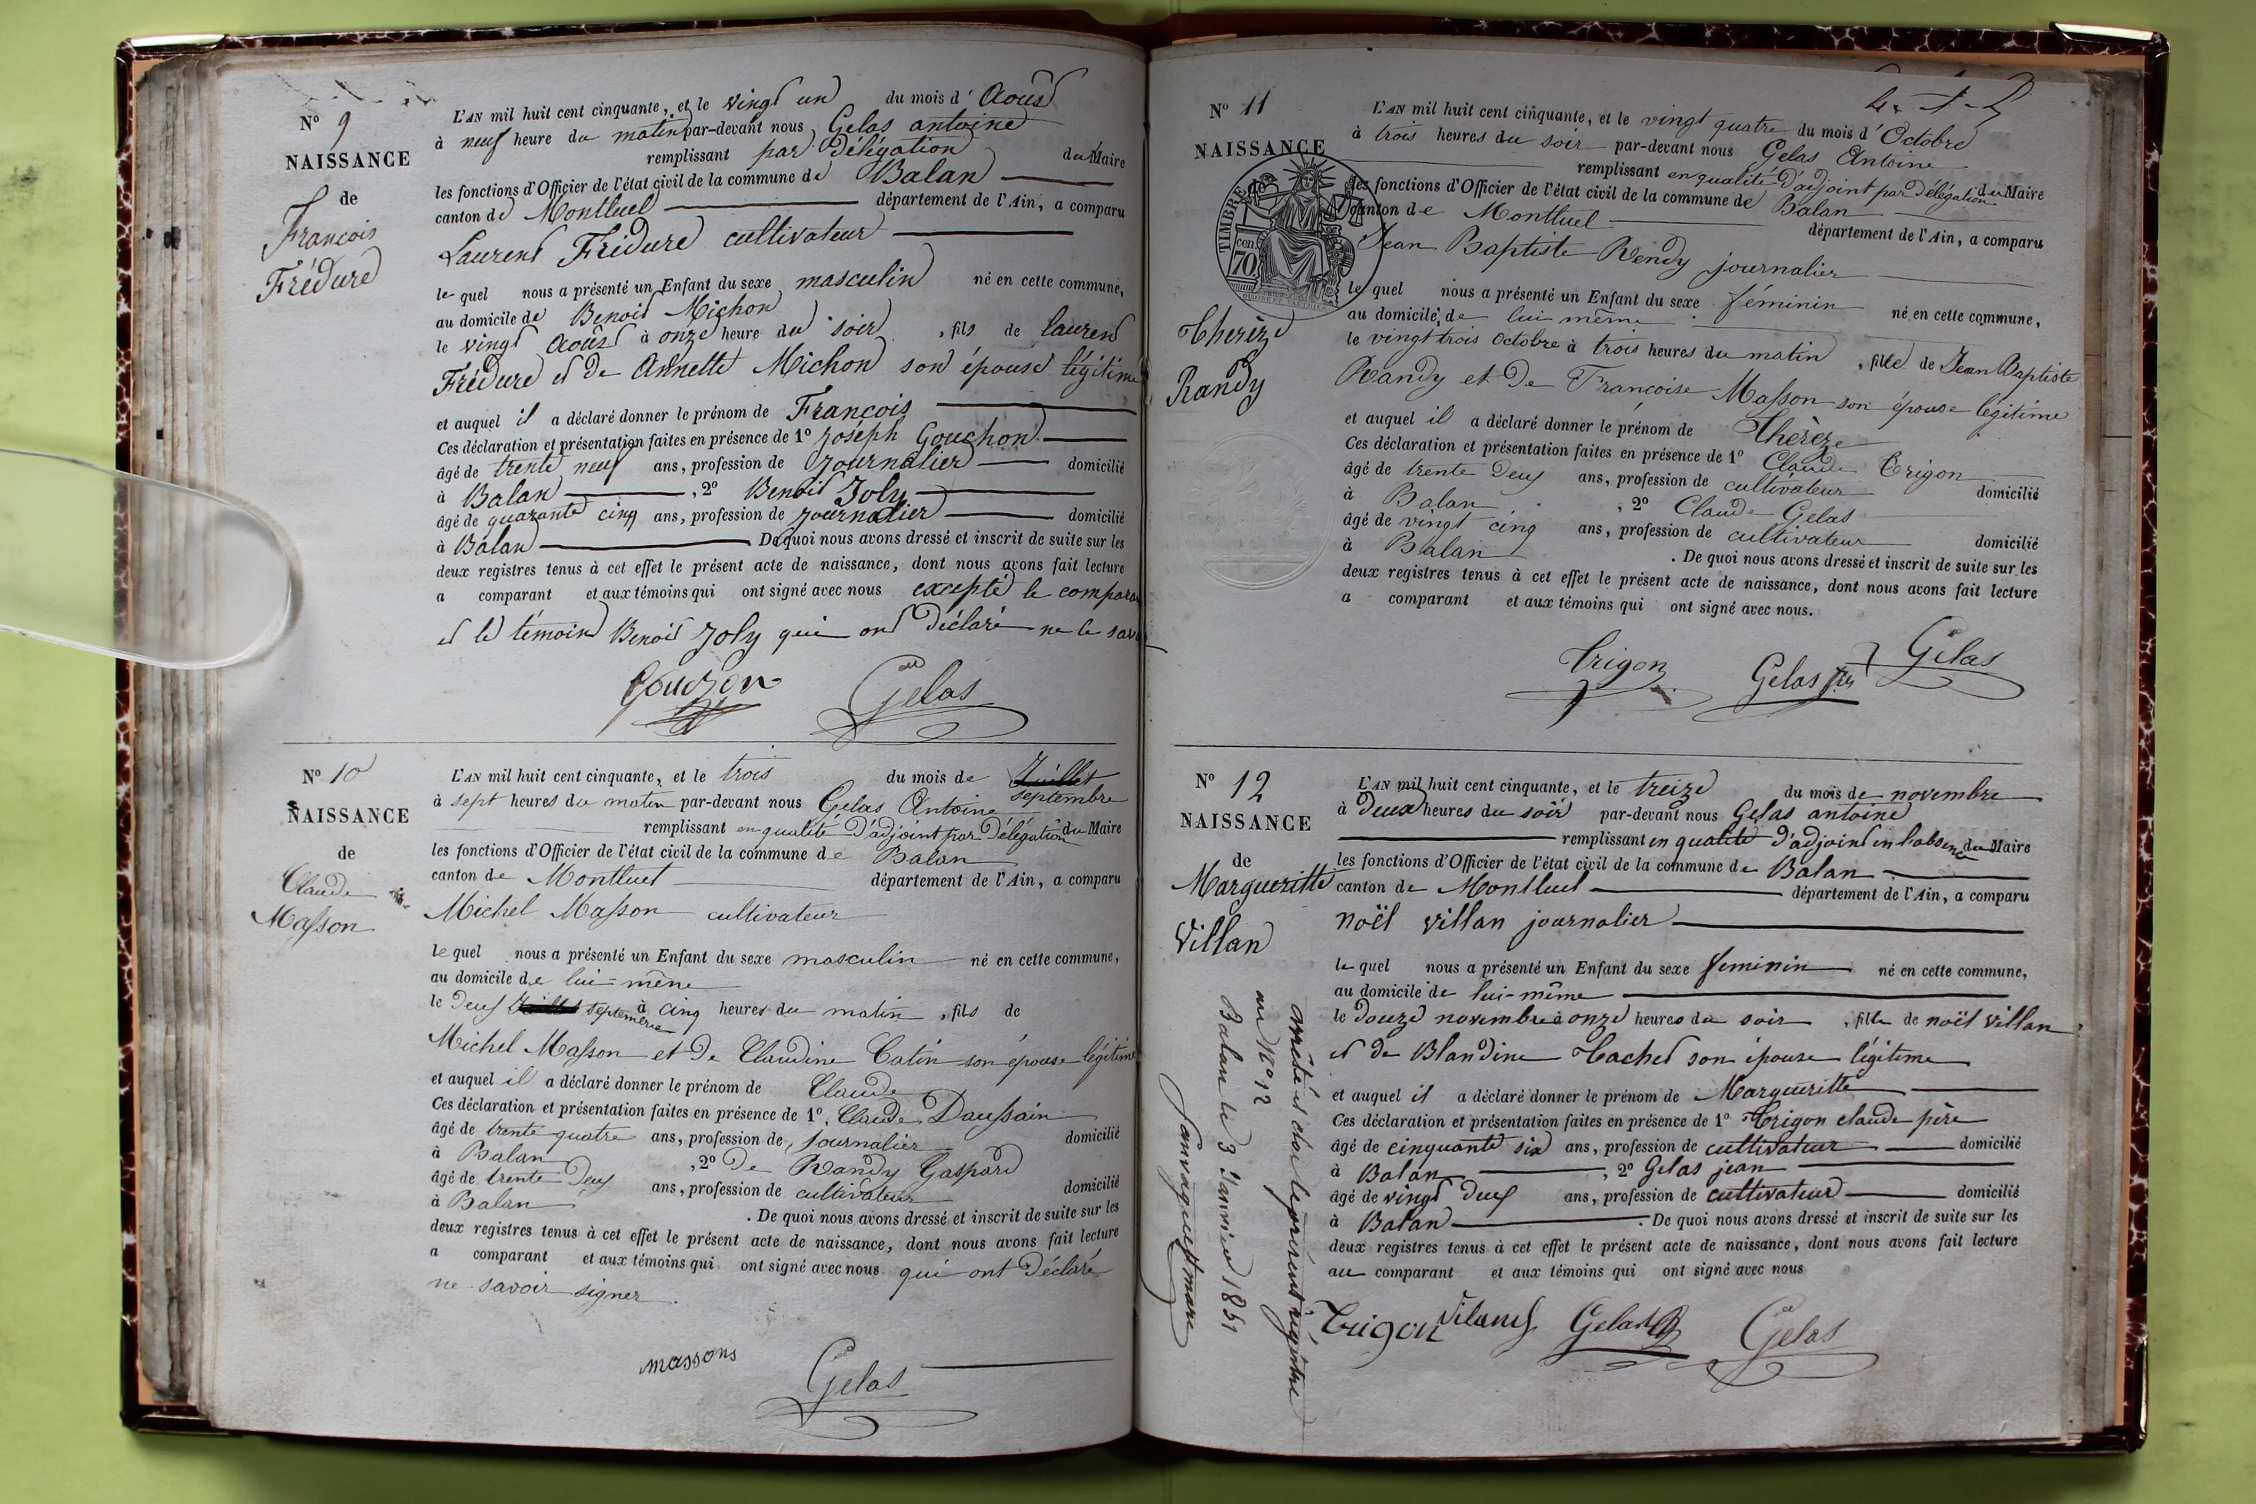 N° 9
NAISSANCE
de
François
Fréduré
L'AN mil huit cent cinquante, et le vingt un du mois d'Aoust
à neuf heure du matin par-devant nous Gelas antoine
remplissant par Délégation du Maire
les fonctions d'Officier de l'état civil de la commune de Balan
canton de Montluel département de l'Ain, a comparu
Laurent Fréduré cultivateur
le quel nous a présenté un Enfant du sexe masculin né en cette commune,
au domicile de Benoit Michon
le vingt Aoust à onze heure du soir, fils de laurent
Fréduré et de Annette Michon son épouse légitime
et auquel il a déclaré donner le prénom de François
Ces déclaration et présentation faites en présence de 1° Joséph Gouchon
âgé de trente neuf ans, profession de Journalier domicilié
à Balan, 2° Benoit Joly
âgé de quarante cinq ans, profession de journalier domicilié
à Balan De quoi nous avons dressé et inscrit de suite sur les
deux registres tenus à cet effet le présent acte de naissance, dont nous avons fait lecture
a comparant et aux témoins qui ont signé avec nous excepté le comparan
et le témoin Benoit Joly qui ont Déclaré ne le savoir
Gouchon Gelas
N° 10
NAISSANCE
de
Claude
Masson
L'AN mil huit cent cinquante, et le trois du mois de Juillet
septembre
à sept heures du matin par-devant nous Gelas Antoine
remplissant en qualité D'adjoint par Délégation du Maire
les fonctions d'Officier de l'état civil de la commune de Balan
canton de Montluel département de l'Ain, a comparu
Michel Masson cultivateur
le quel nous a présenté un Enfant du sexe masculin né en cette commune,
au domicile de lui-même
le Deux Juillet septembre à cinq heures du matin, fils de
Michel Masson et De Claudine Catin son épouse légitime
et auquel il a déclaré donner le prénom de Claude
Ces déclaration et présentation faites en présence de 1°. Claude Daussain
âgé de trente quatre ans, profession de Journalier domicilié
à Balan, 2° De Randy Gaspard
âgé de trente Deux ans, profession de cultivateur domicilié
à Balan. De quoi nous avons dressé et inscrit de suite sur les
deux registres tenus à cet effet le présent acte de naissance, dont nous avons fait lecture
a comparant et aux témoins qui ont signé avec nous qui ont Déclaré
ne savoir signer.
massons
Gelas
N° 11
NAISSANCE
TIMBRE
cen. 70
Therèze
Randy
L'AN mil huit cent cinquante, et le vingt quatre du mois d'Octobre
à trois heures du soir par-devant nous Gelas Antoine
remplissant en qualité D'adjoint par Délégation du Maire
les fonctions d'Officier de l'état civil de la commune de Balan
canton de Montluel département de l'Ain, a comparu
Jean Baptiste Rendy journalier
le quel nous a présenté un Enfant du sexe féminin né en cette commune,
au domicile de lui même
le vingt trois Octobre à trois heures du matin, fille de Jean Baptiste
Randy et De Françoise Masson son épouse légitime
et auquel il a déclaré donner le prénom de Thérèze
Ces déclaration et présentation faites en présence de 1° Claude Trigon
âgé de trente Deux ans, profession de cultivateur domicilié
à Balan, 2° Claude Gelas
âgé de vingt cinq ans, profession de cultivateur domicilié
à Balan. De quoi nous avons dressé et inscrit de suite sur les
deux registres tenus à cet effet le présent acte de naissance, dont nous avons fait lecture
a comparant et aux témoins qui ont signé avec nous.
Trigon Gelas fils Gelas
N° 12
NAISSANCE
de
Margueritte
Villan
L'AN mil huit cent cinquante, et le treize du mois de novembre
à Deux heures du soir par-devant nous Gelas antoine
remplissant en qualité d'adjoint en l'absence du Maire
les fonctions d'Officier de l'état civil de la commune de Balan
canton de Montluel département de l'Ain, a comparu
noël villan journalier
le quel nous a présenté un Enfant du sexe feminin né en cette commune,
au domicile de lui-même
le Douze novembre à onze heures du soir, fille de noël villan
et de Blandine Tachet son épouse légitime
et auquel il a déclaré donner le prénom de Margueritte
Ces déclaration et présentation faites en présence de 1° Trigon claude père
âgé de cinquante six ans, profession de cultivateur domicilié
à Balan, 2° Gelas jean
âgé de vingt deux ans, profession de cultivateur domicilié
à Balan. De quoi nous avons dressé et inscrit de suite sur les
deux registres tenus à cet effet le présent acte de naissance, dont nous avons fait lecture
au comparant et aux témoins qui ont signé avec nous
Trigon Vilant Gelas Gelas
arrêté et clos le présent régistre
au N° 12
Balan le 3 Janvier 1851